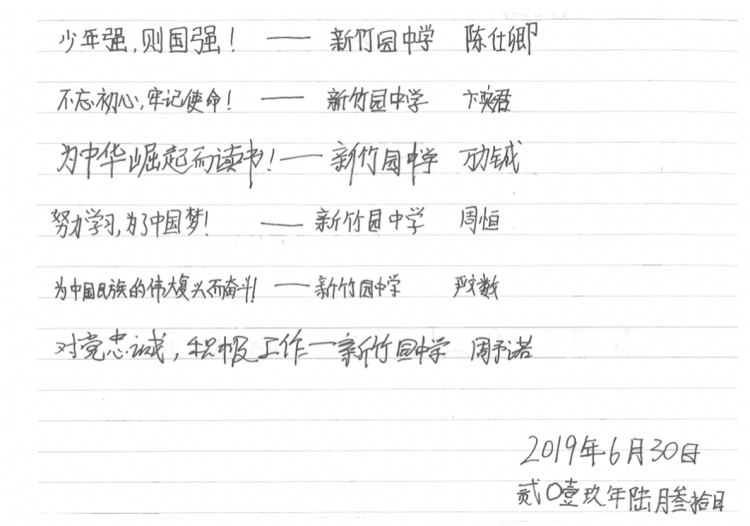 少年强,则国强! —— 新竹园中学 陈仕卿
不忘初心,牢记使命! —— 新竹园中学 卞奕君
为中华崛起而读书!—— 新竹园中学 万力铖
努力学习,为了中国梦! —— 新竹园中学 周恒
为中国民族的伟大复兴而奋斗! —— 新竹园中学 严文数
对党忠诚,积极工作—新竹园中学 周予诺
2019年6月30日
贰0壹玖年陆月叁拾日